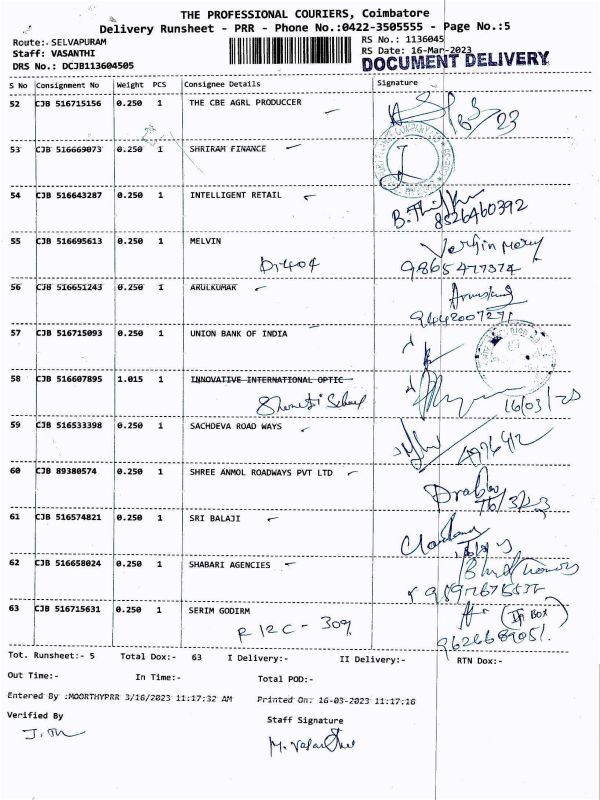 THE PROFESSIONAL COURIERS, Coimbatore
Delivery Runsheet - PRR - Phone No.:0422-3505555 - Page No.:5
Route:- SELVAPURAM
Staff: VASANTHI
DRS No.: DCJB113604505
RS No.: 1136045
RS Date: 16-Mar-2023
DOCUMENT DELIVERY
S No Consignment No Weight PCS Consignee Details Signature
52 CJB 516715156 0.250 1 THE CBE AGRL PRODUCCER
16/3/23
53 CJB 516669073 0.250 1 SHRIRAM FINANCE
54 CJB 516643287 0.250 1 INTELLIGENT RETAIL
8526460392
55 CJB 516695613 0.250 1 MELVIN
9865477374
56 CJB 516651243 0.250 1 ARULKUMAR
9442007271
57 CJB 516715093 0.250 1 UNION BANK OF INDIA
58 CJB 516607895 1.015 1 INNOVATIVE INTERNATIONAL OPTIC
16/03/23
59 CJB 516533398 0.250 1 SACHDEVA ROAD WAYS
60 CJB 89380574 0.250 1 SHREE ANMOL ROADWAYS PVT LTD
16/3/23
61 CJB 516574821 0.250 1 SRI BALAJI
62 CJB 516658024 0.250 1 SHABARI AGENCIES
63 CJB 516715631 0.250 1 SERIM GODIRM
R 12 C - 309
(In Box)
Tot. Runsheet:- 5 Total Dox:- 63 I Delivery:- II Delivery:- RTN Dox:-
Out Time:- In Time:- Total POD:-
Entered By :MOORTHYPRR 3/16/2023 11:17:32 AM Printed On: 16-03-2023 11:17:16
Verified By Staff Signature